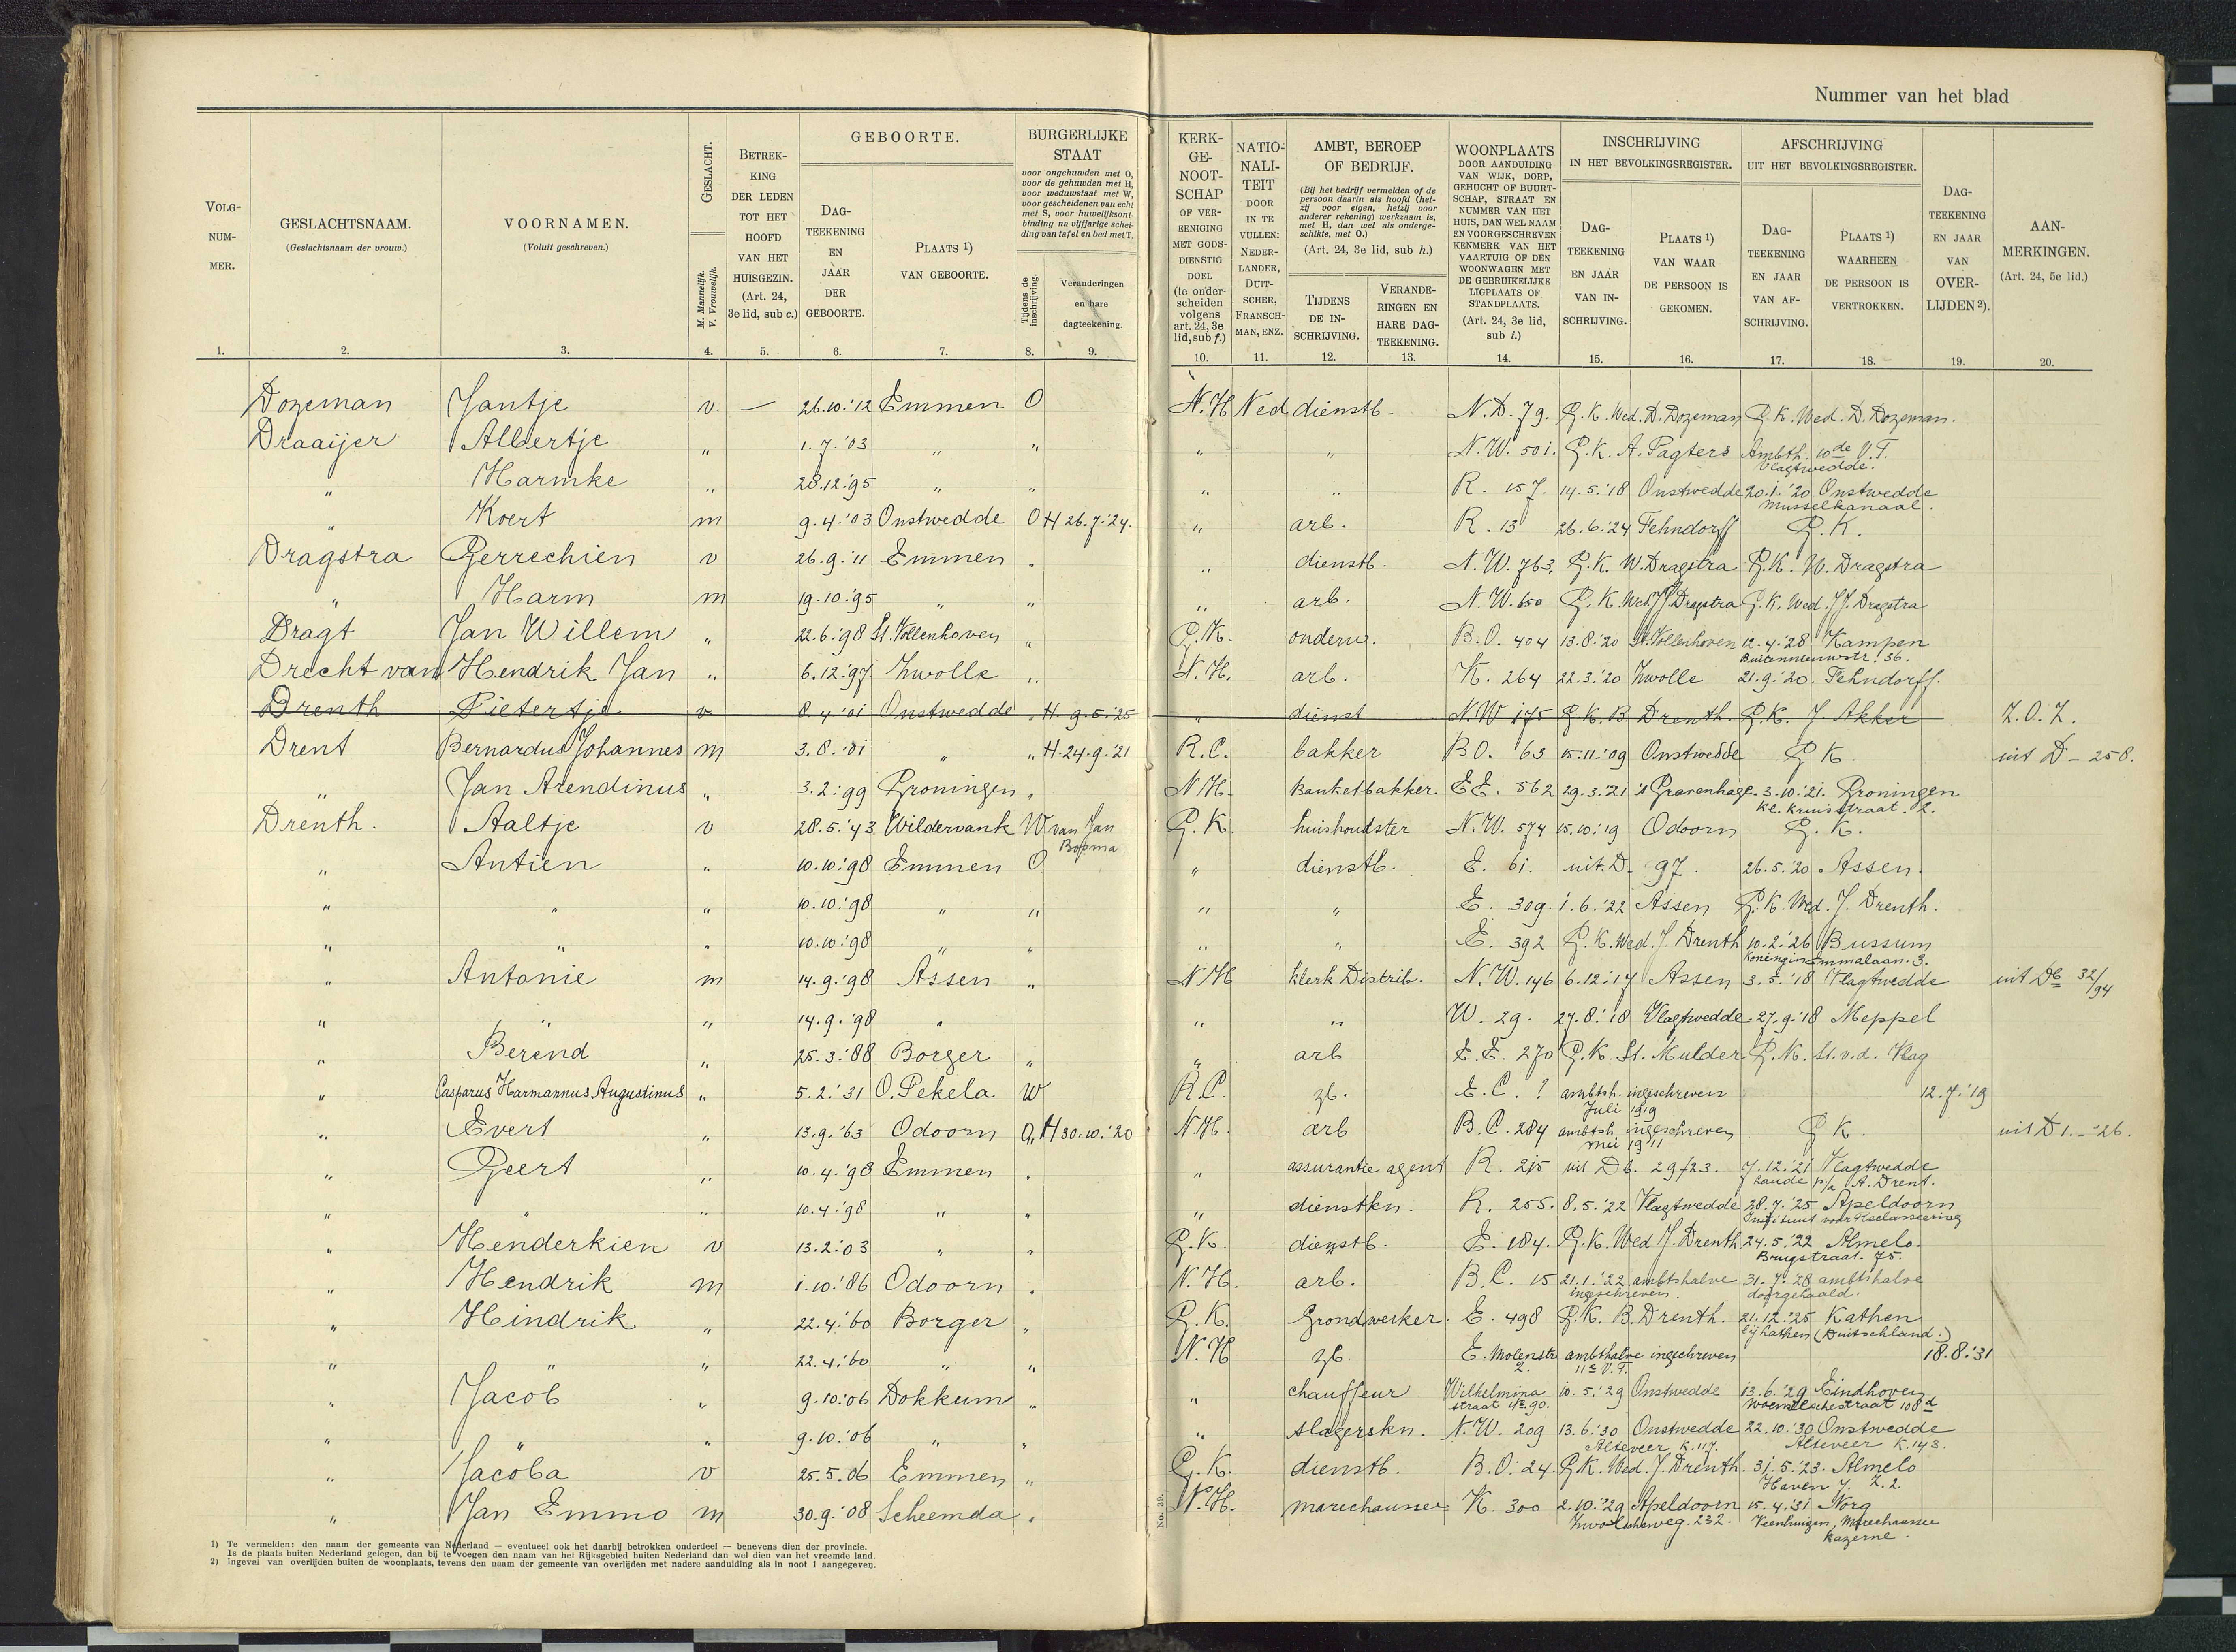 Nummer van het blad
VOLG-NUM-MER.
GESLACHTSNAAM. (Geslachtsnaam der vrouw.)
VOORNAMEN. (Voluit geschreven.)
GESLACHT. M. Mannelijk. V. Vrouwelijk.
BETREK-KING DER LEDEN TOT HET HOOFD VAN HET HUISGEZIN. (Art. 24, 3e lid, sub c.)
GEBOORTE.
DAG-TEEKENING EN JAAR DER GEBOORTE.
PLAATS 1) VAN GEBOORTE.
BURGERLIJKE STAAT
voor ongehuwden met O, voor de gehuwden met H, voor weduwstaat met W, voor gescheidenen van echt met S, voor huwelijksont-binding na vijfjarige schei-ding van tafel en bed met T.
Tijdens de inschrijving.
Veranderingen en hare dagteekening.
KERK-GE-NOOT-SCHAP OF VER-EENIGING MET GODS-DIENSTIG DOEL (te onder-scheiden volgens art. 24, 3e lid, sub f.)
NATIO-NALI-TEIT DOOR IN TE VULLEN: NEDER-LANDER, DUIT-SCHER, FRANSCH-MAN, ENZ.
AMBT, BEROEP OF BEDRIJF.
(Bij het bedrijf vermelden of de persoon daarin als hoofd (het-zij voor eigen, hetzij voor anderer rekening) werkzaam is, met H, dan wel als onderge-schikte, met O.)
(Art. 24, 3e lid, sub h.)
TIJDENS DE IN-SCHRIJVING.
VERANDE-RINGEN EN HARE DAG-TEEKENING.
WOONPLAATS DOOR AANDUIDING VAN WIJK, DORP, GEHUCHT OF BUURT-SCHAP, STRAAT EN NUMMER VAN HET HUIS, DAN WEL NAAM EN VOORGESCHREVEN KENMERK VAN HET VAARTUIG OF DEN WOONWAGEN MET DE GEBRUIKELIJKE LIGPLAATS OF STANDPLAATS. (Art. 24, 3e lid, sub i.)
INSCHRIJVING IN HET BEVOLKINGSREGISTER.
DAG-TEEKENING EN JAAR VAN IN-SCHRIJVING.
PLAATS 1) VAN WAAR DE PERSOON IS GEKOMEN.
AFSCHRIJVING UIT HET BEVOLKINGSREGISTER.
DAG-TEEKENING EN JAAR VAN AF-SCHRIJVING.
PLAATS 1) WAARHEEN DE PERSOON IS VERTROKKEN.
DAG-TEEKENING EN JAAR VAN OVER-LIJDEN 2).
AAN-MERKINGEN. (Art. 24, 5e lid.)
1. 2. 3. 4. 5. 6. 7. 8. 9. 10. 11. 12. 13. 14. 15. 16. 17. 18. 19. 20.
Dozeman Jantje v. — 26.10.'12 Emmen O N.H Ned dienstb. N.D. 79. G.K. Wed. D. Dozeman G.K. Wed. D. Dozeman.
Draaijer Albertje " 1.7.'03 " " " " N.W. 501. G.K. A. Pagters Ambth. 10de V.T.
Vlagtwedde.
" Harmke " 28.12.'95 " " " " R. 157. 14.5.'18 Onstwedde 20.1.'20 Onstwedde
Musselkanaal.
" Koert m 9.4.'03 Onstwedde O H 26.7.'24. " arb. R. 13 26.6.'24 Fehndorff G.K.
Dragstra Gerrechien v 26.9.'11 Emmen " " dienstb. N.W. 763. G.K. W. Dragstra G.K. W. Dragstra
" Harm m 19.10.'95 " " " arb. N.W. 650 G.K. Wed. JJ. Dragstra G.K. Wed. JJ. Dragstra
Dragt Jan Willem " 22.6.'98 St. Vollenhoven " G.K. onderw. B.O. 404 13.8.'20 St. Vollenhoven 12.4.'28 Kampen
Buitennieuwstr. 36.
Drecht van Hendrik Jan " 6.12.'97. Zwolle " N.H. arb. K. 264 22.3.'20 Zwolle 21.9.'20. Fehndorff.
Drenth Pietertje v 8.4.'01 Onstwedde " H 9.5.'25 " dienst N.W 175 G.K. B. Drenth. G.K. J. Akker Z.O.Z.
Drent Bernardus Johannes m 3.8.'01 " " H. 24.9.'21 R.C. bakker BO. 63 15.11.'09 Onstwedde G K. uit D - 258.
" Jan Arendinus " 3.2.'99 Groningen " N H. banketbakker. EE. 562 29.3.'21 's Gravenhage. 3.10.'21. Groningen
Kl. Kruisstraat. 2.
Drenth. Aaltje v 28.5.'43. Wildervank W van Jan Bosma G.K. huishoudster N.W. 574 15.10.'19 Odoorn G.K.
" Antien " 10.10.'98 Emmen O " dienstb. E. 61. uit. D. 97. 26.5.'20. Assen.
" " " 10.10.'98 " " " " E. 309. 1.6.'22 Assen G.K. Wed. J. Drenth.
" " " 10.10.'98 " " " " E. 392 G.K. Wed. J. Drenth 10.2.'26 Bussum
Koningin Emmalaan. 3.
" Antonie m 14.9.'98 Assen " N H klerk Distrib. N.W. 146 6.12.'17 Assen 3.5.'18 Vlagtwedde uit Db 32/94
" " " 14.9.'98 " " " W. 29. 27.8.'18 Vlagtwedde. 27.9.'18 Meppel
" Berend " 25.3.'88 Borger " " arb E.E. 270 G.K. St. Mulder G.K. St. v.d. Klag
" Casparus Harmannus Augustinus " 5.2.'31 O. Pekela W R.C. zb. E.C. ? ambtsh. ingeschreven 12.7.'19
Juli 1919
" Evert " 13.9.'63 Odoorn O, H 30.10.'20 N.H. arb B.C. 284 ambtsh. ingeschreven G K. uit D 1. - '26.
mei 1911
" Geert " 10.4.'98 Emmen " " assurantie agent R. 215 uit Db. 29/23. 7.12.'21 Vlagtwedde
p/a A. Drent.
" " " 10.4.'98 " " " dienstkn. R. 255. 8.5.'22 Vlagtwedde 28.7.'25 Apeldoorn
Instituut voor Reclasseering
" Henderkien v 13.2.'03 " " G.K. dienstb. E. 184. G.K. Wed J. Drenth 24.5.'22 Almelo.
Brugstraat. 75.
" Hendrik m 1.10.'86 Odoorn " N.H. arb. B.C. 15 21.1.'22 ambtshalve 31.7.'28 ambtshalve
ingeschreven. doorgehaald.
" Hindrik " 22.4.'60 Borger " G.K. Grondwerker. E. 498 G.K. B. Drenth. 21.12.'25 Kathen
bij Lathen (Duitschland.)
" " " 22.4.'60 " " N.H zb. E. Molenstr ambtshalve ingeschreven 18.8.'31
2. 11e V.T.
" Jacob " 9.10.'06 Dokkum " " chauffeur Wilhelmina 10.5.'29 Onstwedde 13.6.'29 Eindhoven
straat 90. Woenselschestraat 108d
" " " 9.10.'06 " " " slagerskn. N.W. 209 13.6.'30 Onstwedde 22.10.'30 Onstwedde
Alteveer K. 117. Alteveer K. 143.
" Jacoba v 25.5.'06 Emmen " G.K. dienstb. B.O. 24. G.K. Wed. J. Drenth. 31.5.'23. Almelo
Haven Z.2.
" Jan Emmo m 30.9.'08 Scheemda " N.H. marechaussee K. 300 2.10.'29 Apeldoorn 15.4.'31 Norg
Zwolscheweg. 232. Veenhuizen, Marechaussee
kazerne.
No. 39.
1) Te vermelden: den naam der gemeente van Nederland — eventueel ook het daarbij betrokken onderdeel — benevens dien der provincie.
Is de plaats buiten Nederland gelegen, dan bij te voegen den naam van het Rijksgebied buiten Nederland dan wel dien van het vreemde land.
2) Ingeval van overlijden buiten de woonplaats, tevens den naam der gemeente van overlijden met nadere aanduiding als in noot 1 aangegeven.